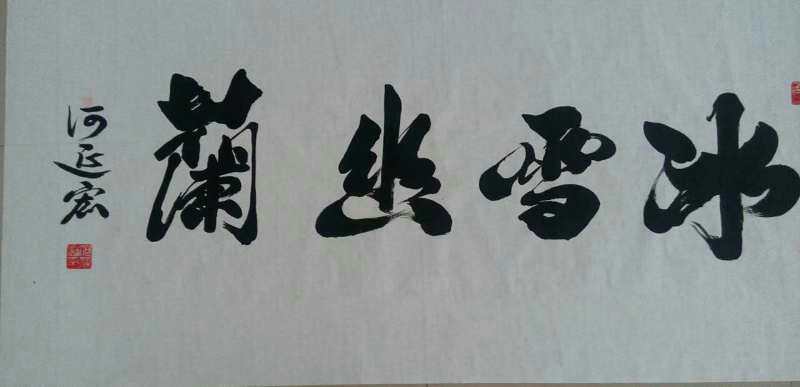 冰雪幽蘭
河延宏